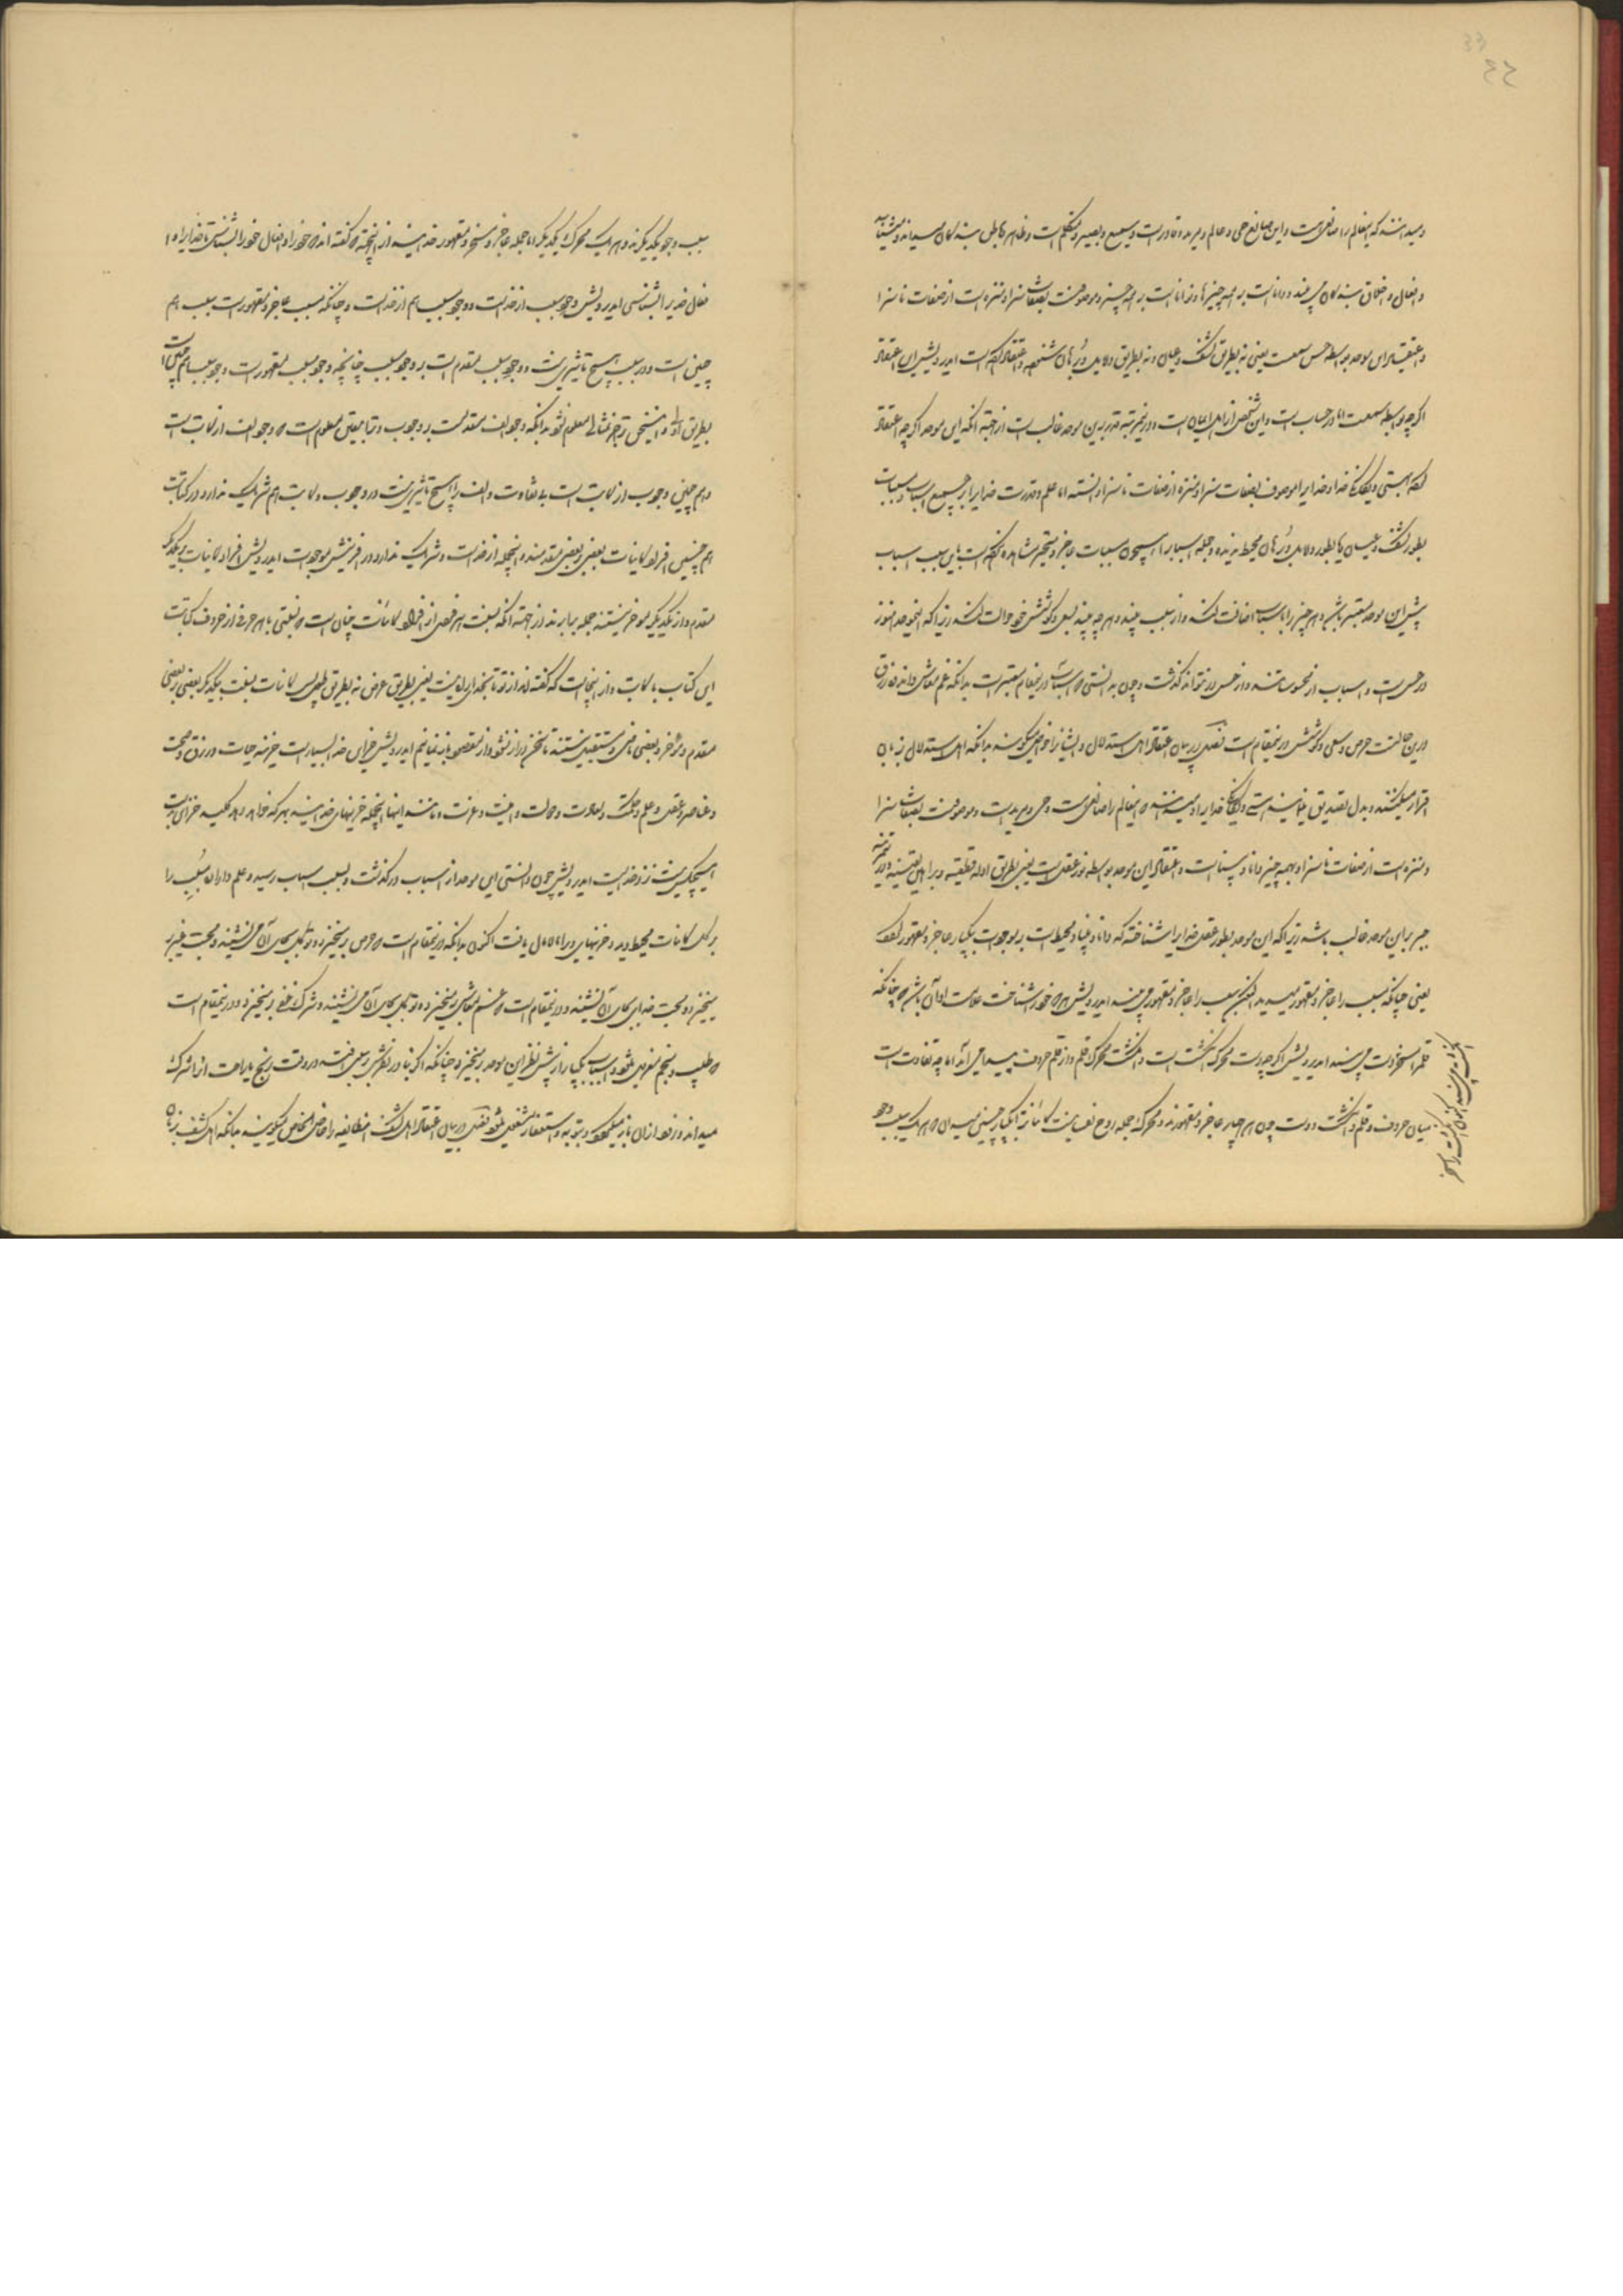 33
و میدانند که اینعالم را صانعی است و این صانع حی و عالم و مرید و قادر است و سمیع و بصیر و متکلم است و ظاهر و باطن بندگان میداند و
و افعال و اخلاق بندگان می بیند و داناست بر همه چیزها و تواناست بر همه چیز و موصوفست بصفات سزا و منزه است از صفات ناسزا
و اعتقاد این موحد بواسطه حس سمعست یعنی نه بطریق کشف و عیان و نه بطریق دلایل و برهان اعتقاد کرده است ایدرویش این اعتقاد
اگر چه بواسطه سمعست اما در حساب است و این شخص از اهل ایمان است و درین مرتبه برین موحد غالب است از جهة آنکه این موحد اگر چه اعتقاد
کرده بهستی و یگانگی خدا و خدایرا موصوف بصفات سزا و منزه از صفات ناسزا دانسته اما علم و قدرت خدایرا بر جمیع اسباب و مسببات
بطور کشف و عیان یا بطور دلایل و برهان محیط ندیده و جمله اسباب را همچون مسببات عاجز و متحیر مشاهده نکرده است سبب اسباب
پیش این موحد معتبر باشد و هر چیز را باسباب اضافت کند و از سبب بیند و هر چه بیند بسعی و کوشش خود حوالت کند زیرا که اینموحد هنوز
در حس است و اسباب از محسوساتند و از حس در نتواند گذشت
درین حالست حرص و سعی و کوشش درینمقام است فصل در بیان اعتقاد اهل استدلال و ایشانرا خواص میگویند بدانکه اهل استدلال بزبان
اقرار میکنند و بدل تصدیق مینمایند هستی و یگانگی خدایرا و میدانند که اینعالم را صانعی است و حی و مرید است و موصوفست بصفات سزا
و منزه است از صفات ناسزا و بهمه چیز دانا و بیناست و اعتقاد این موحد بواسطه نور عقل است یعنی بطریق ادله قطعیه و براهین یقینیه و در
جبر بر این موحد غالب باشد زیرا که این موحد بطور عقل خدایرا شناخته که دانا و بینا و محیط است بر موجودات یکبار عاجز و مقهور
یعنی چنانکه مسبب را عاجز و مقهور میدید اکنون سبب را عاجز و مقهور می بیند ایدرویش هر که خود را شناخت علامت او آن باشد که چنانکه
قلم را مسخر دست می بیند ایدرویش اگر چه دست محرک انگشت است و انگشت محرک قلم و از قلم حروف پیدا می آید اما چه تفاوت است
میان حروف و قلم و انگشت و دست چون هر چهار عاجز و مقهورند و محرک جمله روح نفسانیست
سبب وجود یکدیگرند و هر یک محرک یکدیگر اما جمله عاجز و مسخر و مقهور خدایند از اینجهة که گفته اند که خود را و افعال خود را بشناس تا خدایرا و
فعل خدایرا بشناسی ایدرویش وجود سبب از خداست و وجود مسبب هم از خداست و چنانکه مسبب عاجز و مقهور است سبب هم
چنین است و در مسبب هیچ تاثیریش نیست و وجود سبب مقدم است بر وجود مسبب چنانچه وجود مسبب مقهور است وجود سبب هم چنین است
بطریق و اینسخن جز بمثالی معلوم نشود بدانکه وجود الف مقدمست بر وجود ب و تا بیقین معلوم است که وجود الف از کاتب است
و هم چنین وجود ب از کاتب است بی تفاوت و الف را هیچ تاثیری نیست در وجود ب و کاتب هم شریک ندارد در کتابت
هم چنین افراد کاینات بعضی بر بعضی مقدمند و اینجمله از خداست و شریک ندارد در آفرینش موجودات ایدرویش افراد کاینات بر یکدیگر
مقدم و از یکدیگر موخر نیستند جمله برابرند از جهة آنکه نسبت هر فردی از افراد کاینات چنان است که نسبتی با هر حرفی از حروف کتابت
این کتاب با کاتب و از اینجاست که گفته اند از تو تا بخدای راه نیست یعنی بطریق عرض نه بطریق طول پس کاینات بنسبت یکدیگر بعضی بر بعضی
مقدم و موخر و بعضی ماضی و مستقبل هستند تا سخن دراز نشود و از مقصود باز نمانیم ایدرویش خزاین خدا بسیار است خزینه حیات و رزق و صحت
و عناصر و عقل و علم و حکمت و سعادت و دولت و امنیت و عزت و مانند اینها اینجمله خزینهای خدایند بهر که خواهد دهد کلید خزاین بدست
هیچکس نیست نزد خداست ایدرویش چون دانستی این موحد از اسباب در گذشت و بسبب اسباب رسید و علم و اراده مسبب را
بر کل کاینات محیط دید و خزینهای ویرا مالامال یافت اکنون بدانکه درینمقام است که حرص برمیخیزد و توکل بجای آن می نشیند و محبت غیر بر
میخیزد و محبت خدای بجای آن می نشیند و درینمقام است که غم معاش برمیخیزد و توکل بجای آن می نشیند و شرک خفی برمیخیزد و درینمقام است
که طبیب و منجم معزول میشود و اسباب یکبار از پیش نظر این موحد برمیخیزد چنانکه اگر بنادر نظرش بر سببی افتد در وقت رنج یا راحت آنرا شرک
میداند و زود از آن باز میگردد و بتوبه و استغفار مشغول میشود فصل در بیان اعتقاد اهل کشف اینطایفه را خاص الخاص میگویند بدانکه اهل کشف بزبان